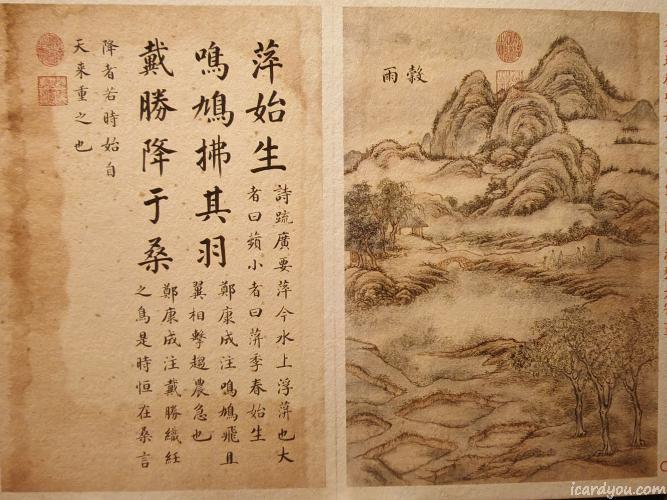 穀雨
萍始生
詩疏廣要萍今水上浮蓱也大
者曰蘋小者曰蓱季春始生
鳴鳩拂其羽
鄭康成注鳴鳩飛且
翼相擊趨農急也
戴勝降于桑
鄭康成注戴勝織紝
之鳥是時恒在桑言
降者若時始自
天來重之也
icardyou.com